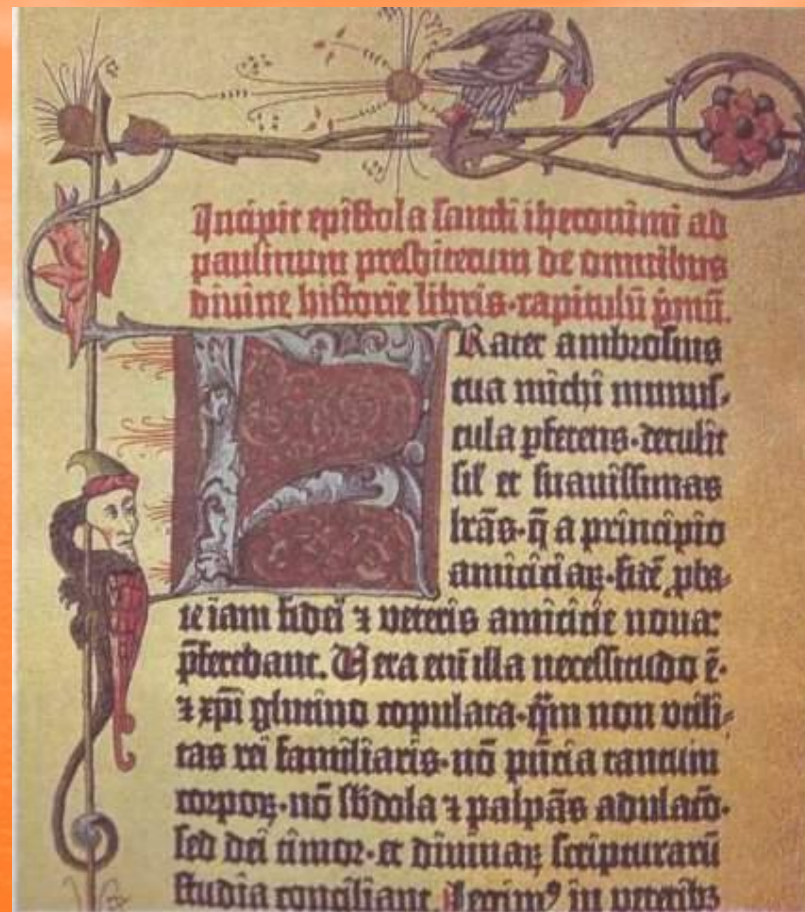 Incipit epistola sancti iheronimi ad
paulinum presbiterum de omnibus
divine historie libris·capitulū p̄mū.
FRater ambrosius
tua michi munus-
cula ꝑferens·detulit
sil' et suavissimas
lrās·q̄ a principio
amiciciaꝝ·fidē ꝓba-
te iam fidei ⁊ veteris amicicie nova:
p̄ferebant. Vera enī illa necessitudo ē·
⁊ xp̄i glutino copulata·q̄m non utili-
tas rei familiaris·nō p̄ncia tantum
corpoꝝ·nō sb̄dola ⁊ palpās adulacō·
sed dei timor·et divinaꝝ scripturarū
studia conciliant. Legimꝰ in veteribꝫ